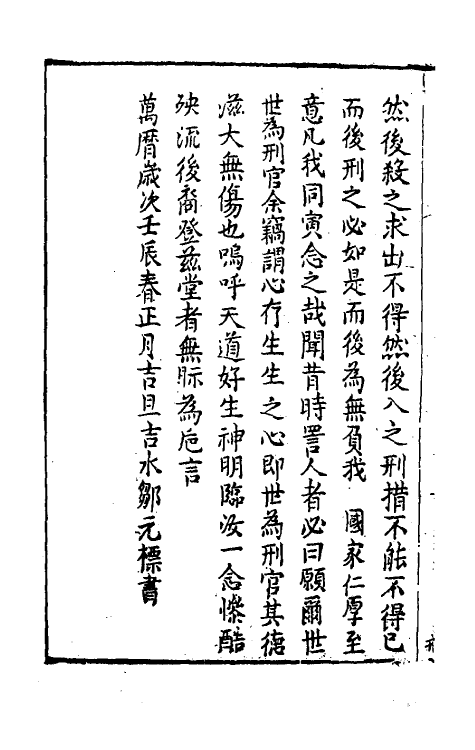 然後殺之求出不得然後入之刑措不能不得已
而後刑之必如是而後為無負我　國家仁厚至
意凡我同寅念之哉聞昔時詈人者必曰願爾世
世為刑官余竊謂心存生生之心即世為刑官其德
滋大無傷也嗚呼天道好生神明臨汝一念慘酷
殃流後裔登茲堂者無眎為卮言
萬曆歲次壬辰春正月吉旦吉水鄒元標書